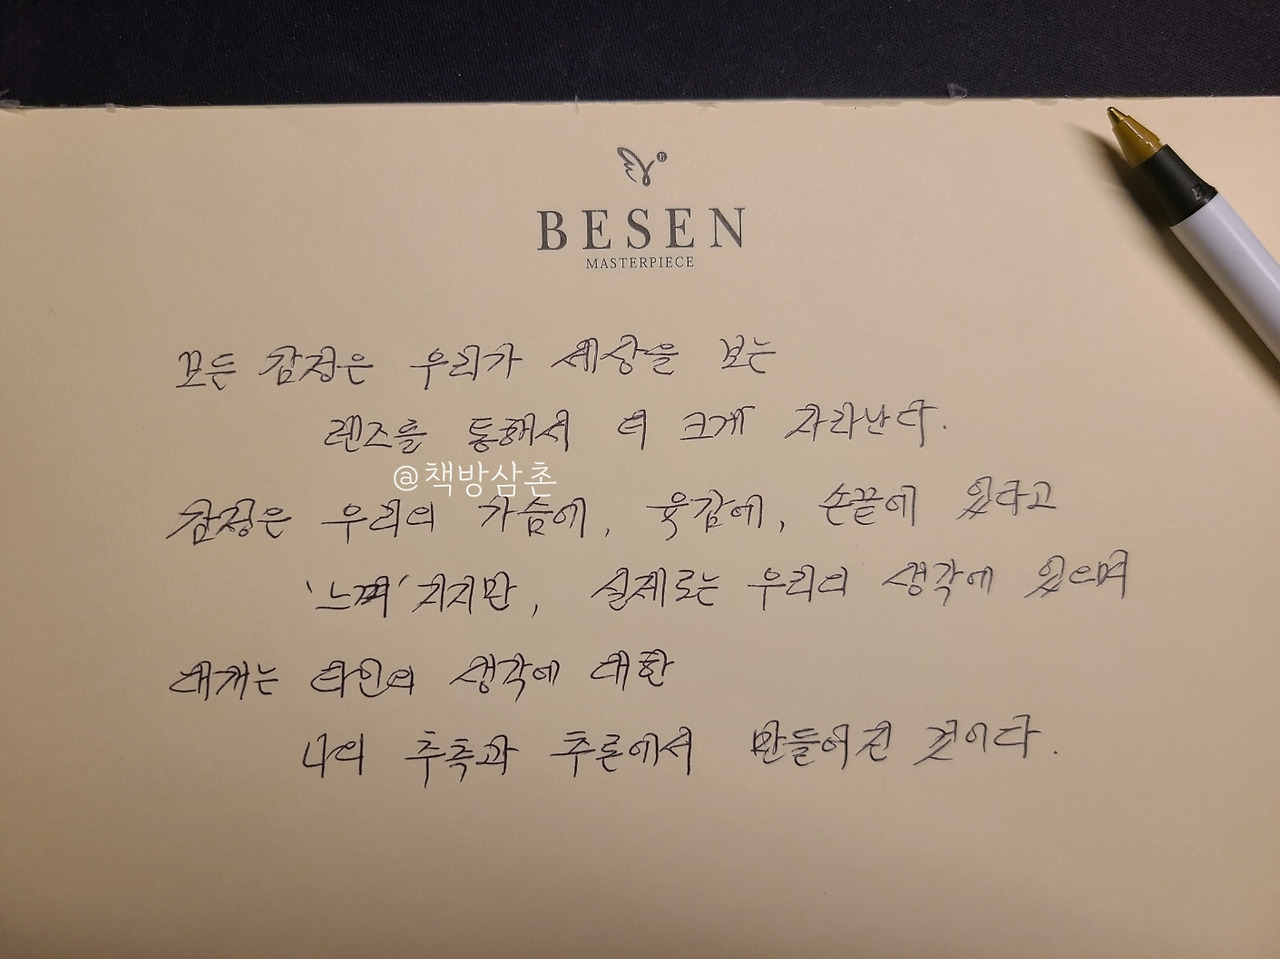 BESEN
MASTERPIECE
모든 감정은 우리가 세상을 보는
렌즈를 통해서 더 크게 자라난다.
@책방삼촌
감정은 우리의 가슴에, 육감에, 손끝에 있다고
'느껴'지지만, 실제로는 우리의 생각에 있으며
대개는 타인의 생각에 대한
나의 추측과 추론에서 만들어진 것이다.